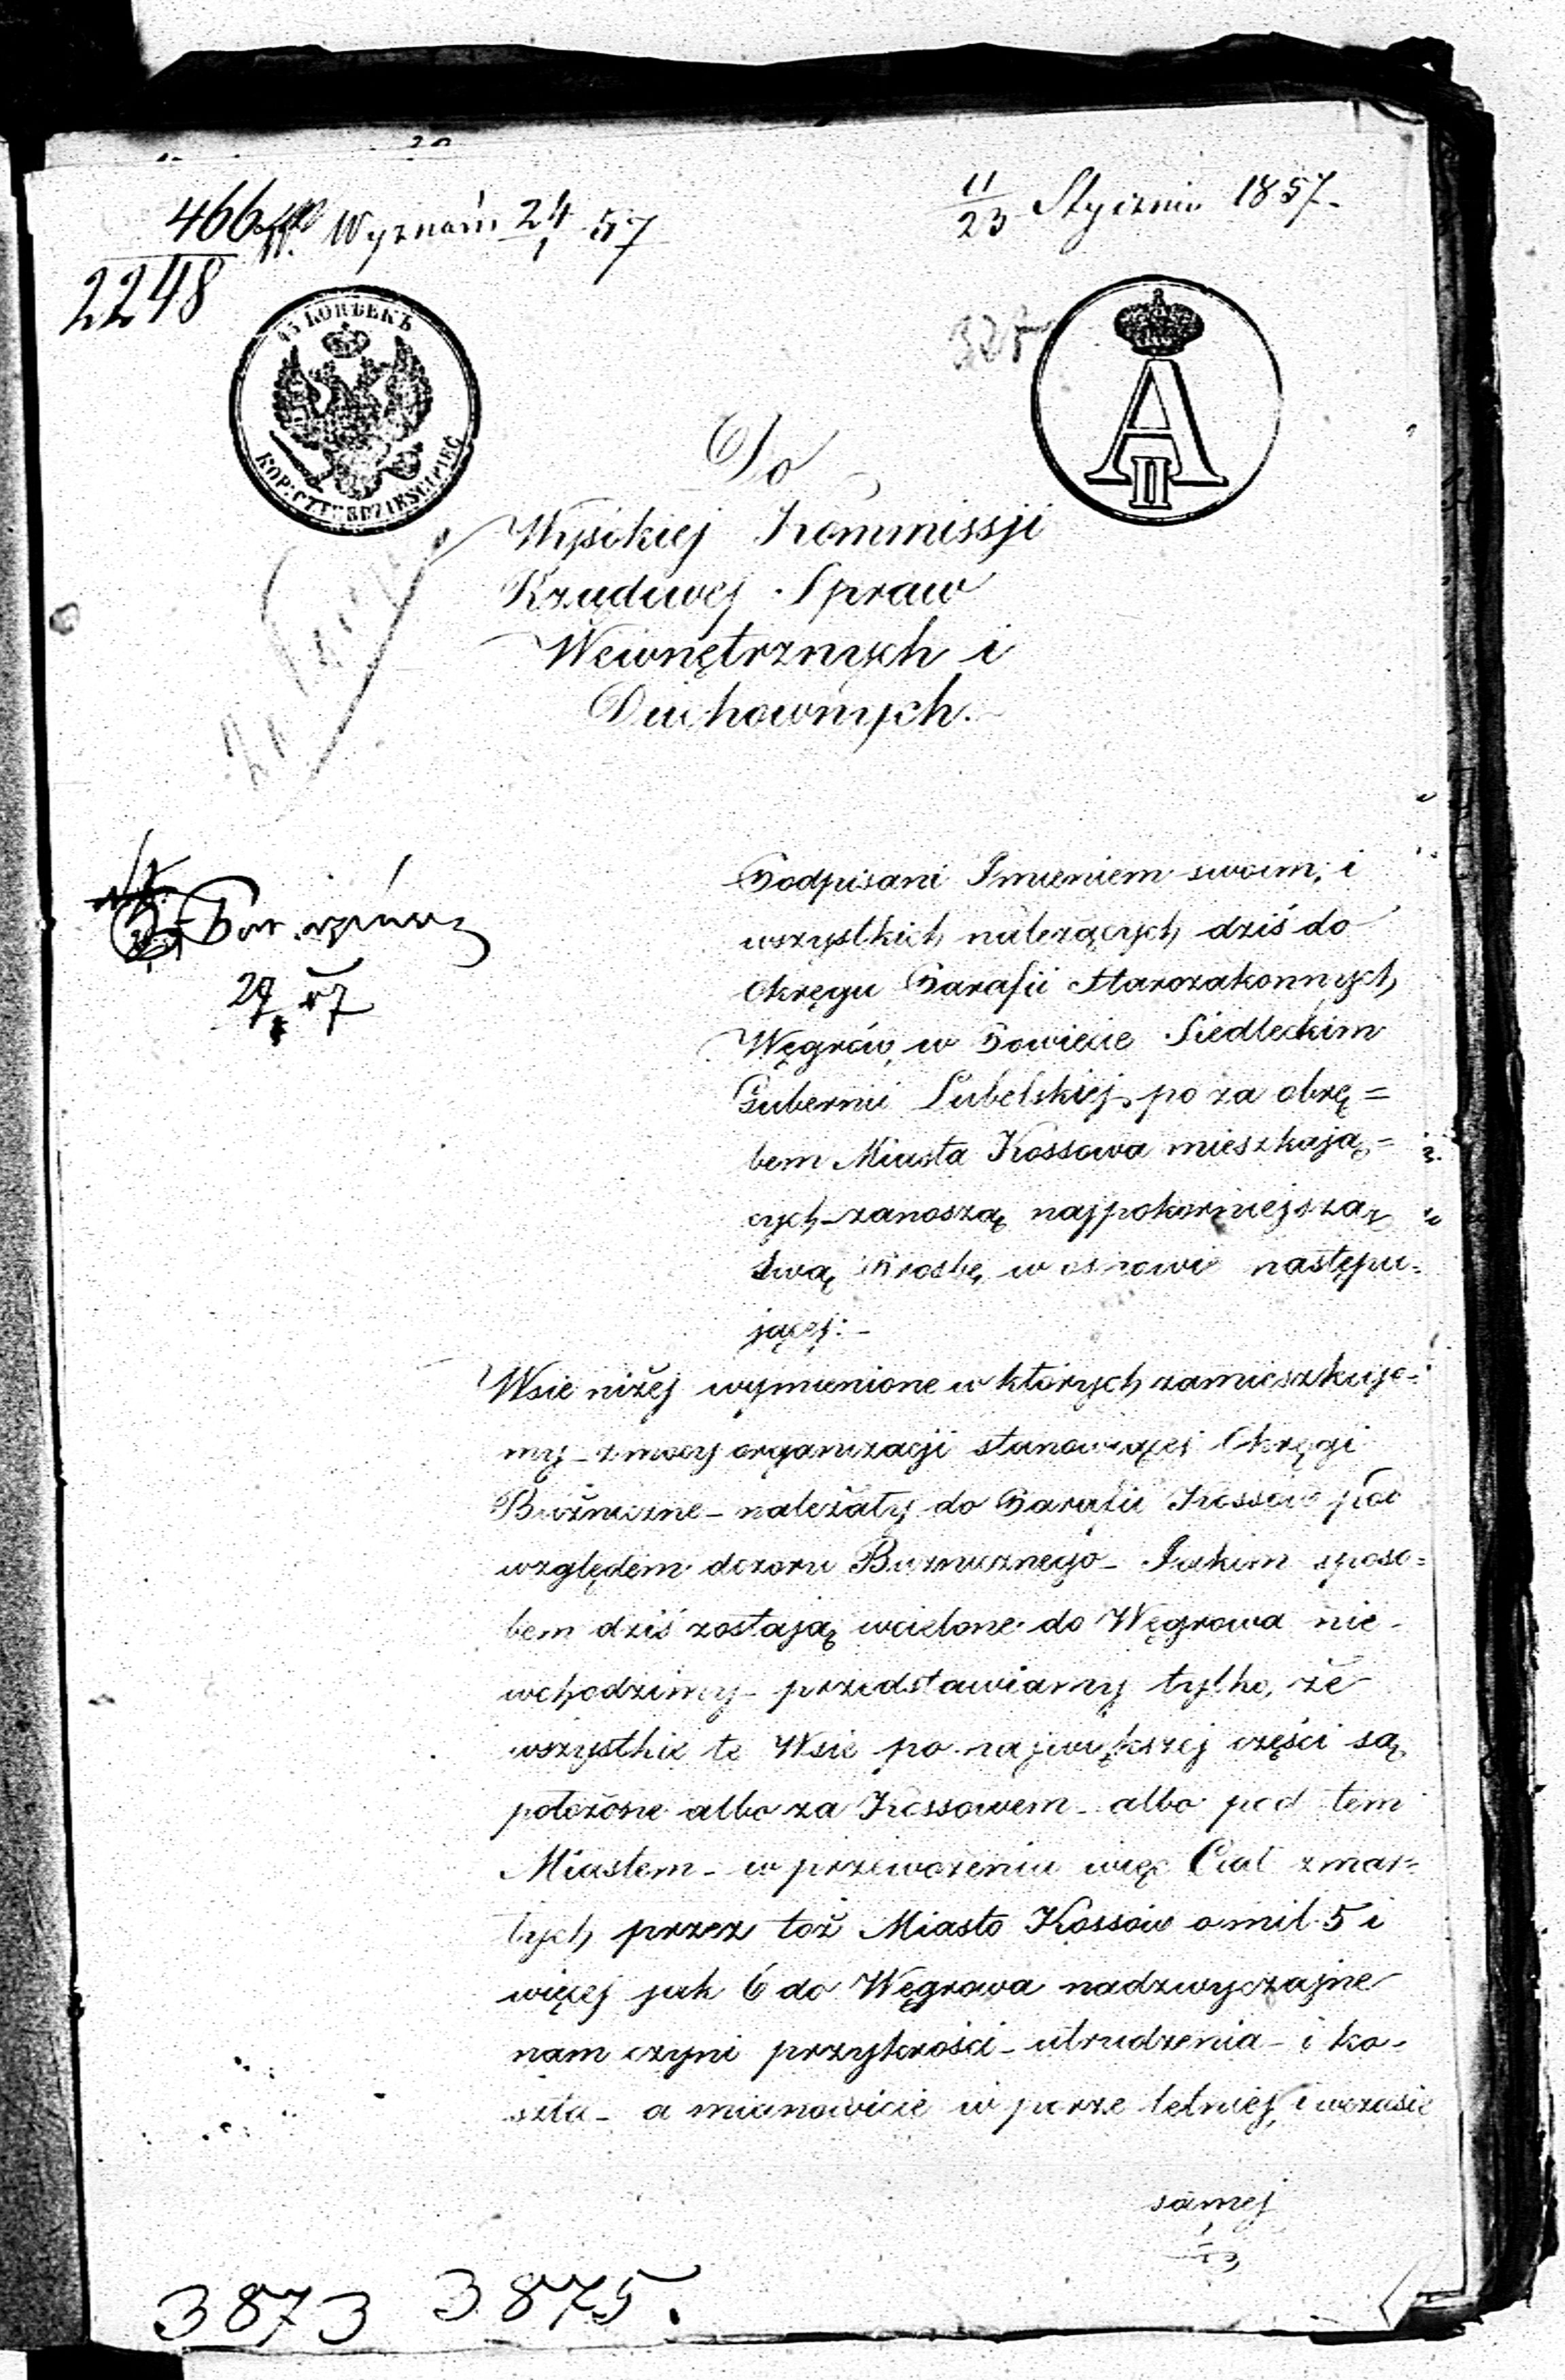 466 Wyznań 24/1 57
2248
11/23 Stycznia 1857.
45 КОПѢЕКЪ
KOP: CZTERDZIEŚCI PIĘĆ
A II
Do
Wysokiej Kommissji
Rządowej Spraw
Wewnętrznych i
Duchownych.
Podpisani Imieniem swoim, i
wszystkich należących dziś do
Okręgu Parafii Starozakonnych
Węgrów, w Powiecie Siedleckim
Gubernii Lubelskiej, po za obrę=
bem Miasta Kossowa mieszkają=
cych – zanoszą najpokorniejszą
swą Prośbę, w osnowie następu=
jącej: –
Wsie niżej wymienione w których zamieszkuje=
my – z mocy organizacji stanowiącej Okręgi
Bużniczne – należały do Parafii Kossow pod
względem dozoru Bużnicznego – Jakim sposo=
bem dziś zostają wcielone do Węgrowa nie
wchodzimy – przedstawiamy tylko, że
wszystkie te Wsie po największej części są
położone albo za Kossowem – albo pod tem
Miastem – w przewożeniu więc Ciał zmar=
łych przez toż Miasto Kossów o mil 5 i
więcej jak 6 do Węgrowa nadzwyczajne
nam czyni przykrości – utrudzenia – i ko=
szta – a mianowicie w porze letniej, i w czasie
samej
3873 3875.